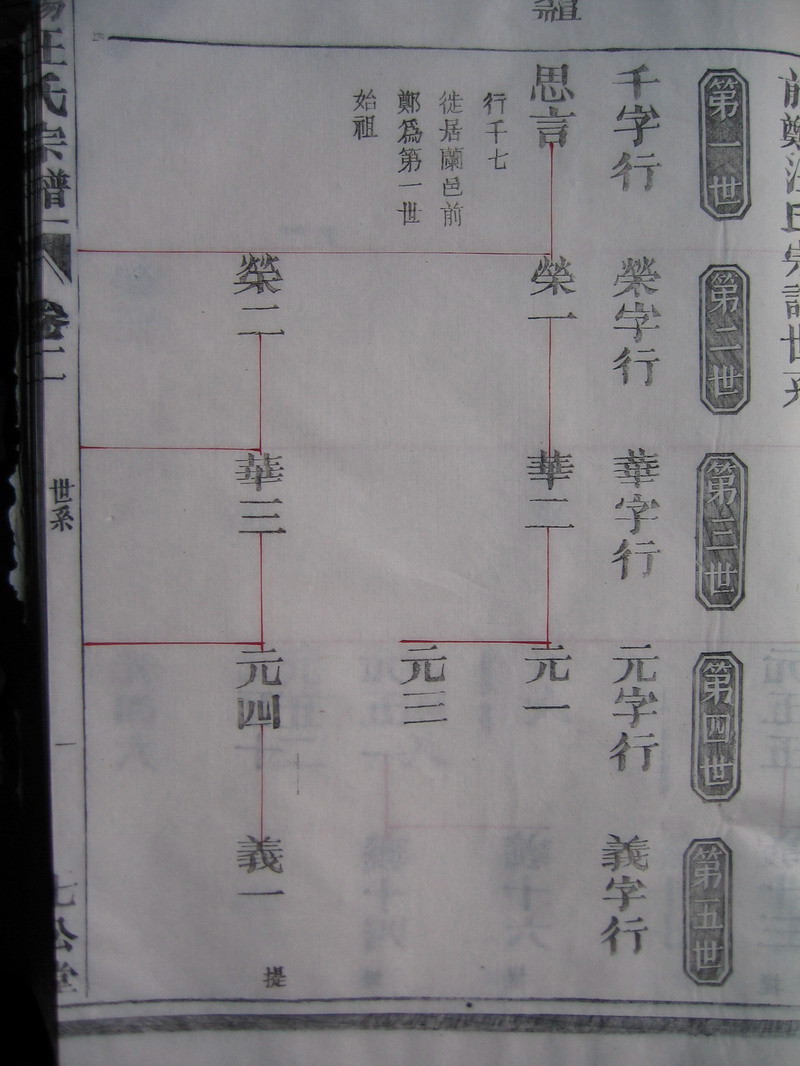 前鄭汪氏宗譜世系
第一世
第二世
第三世
第四世
第五世
千字行
榮字行
華字行
元字行
義字行
思言
行千七
徙居蘭邑前
鄭爲第一世
始祖
榮一
華二
元一
元三
榮二
華三
元四
義一
提
汪氏宗譜
卷二
世系
一
七公堂